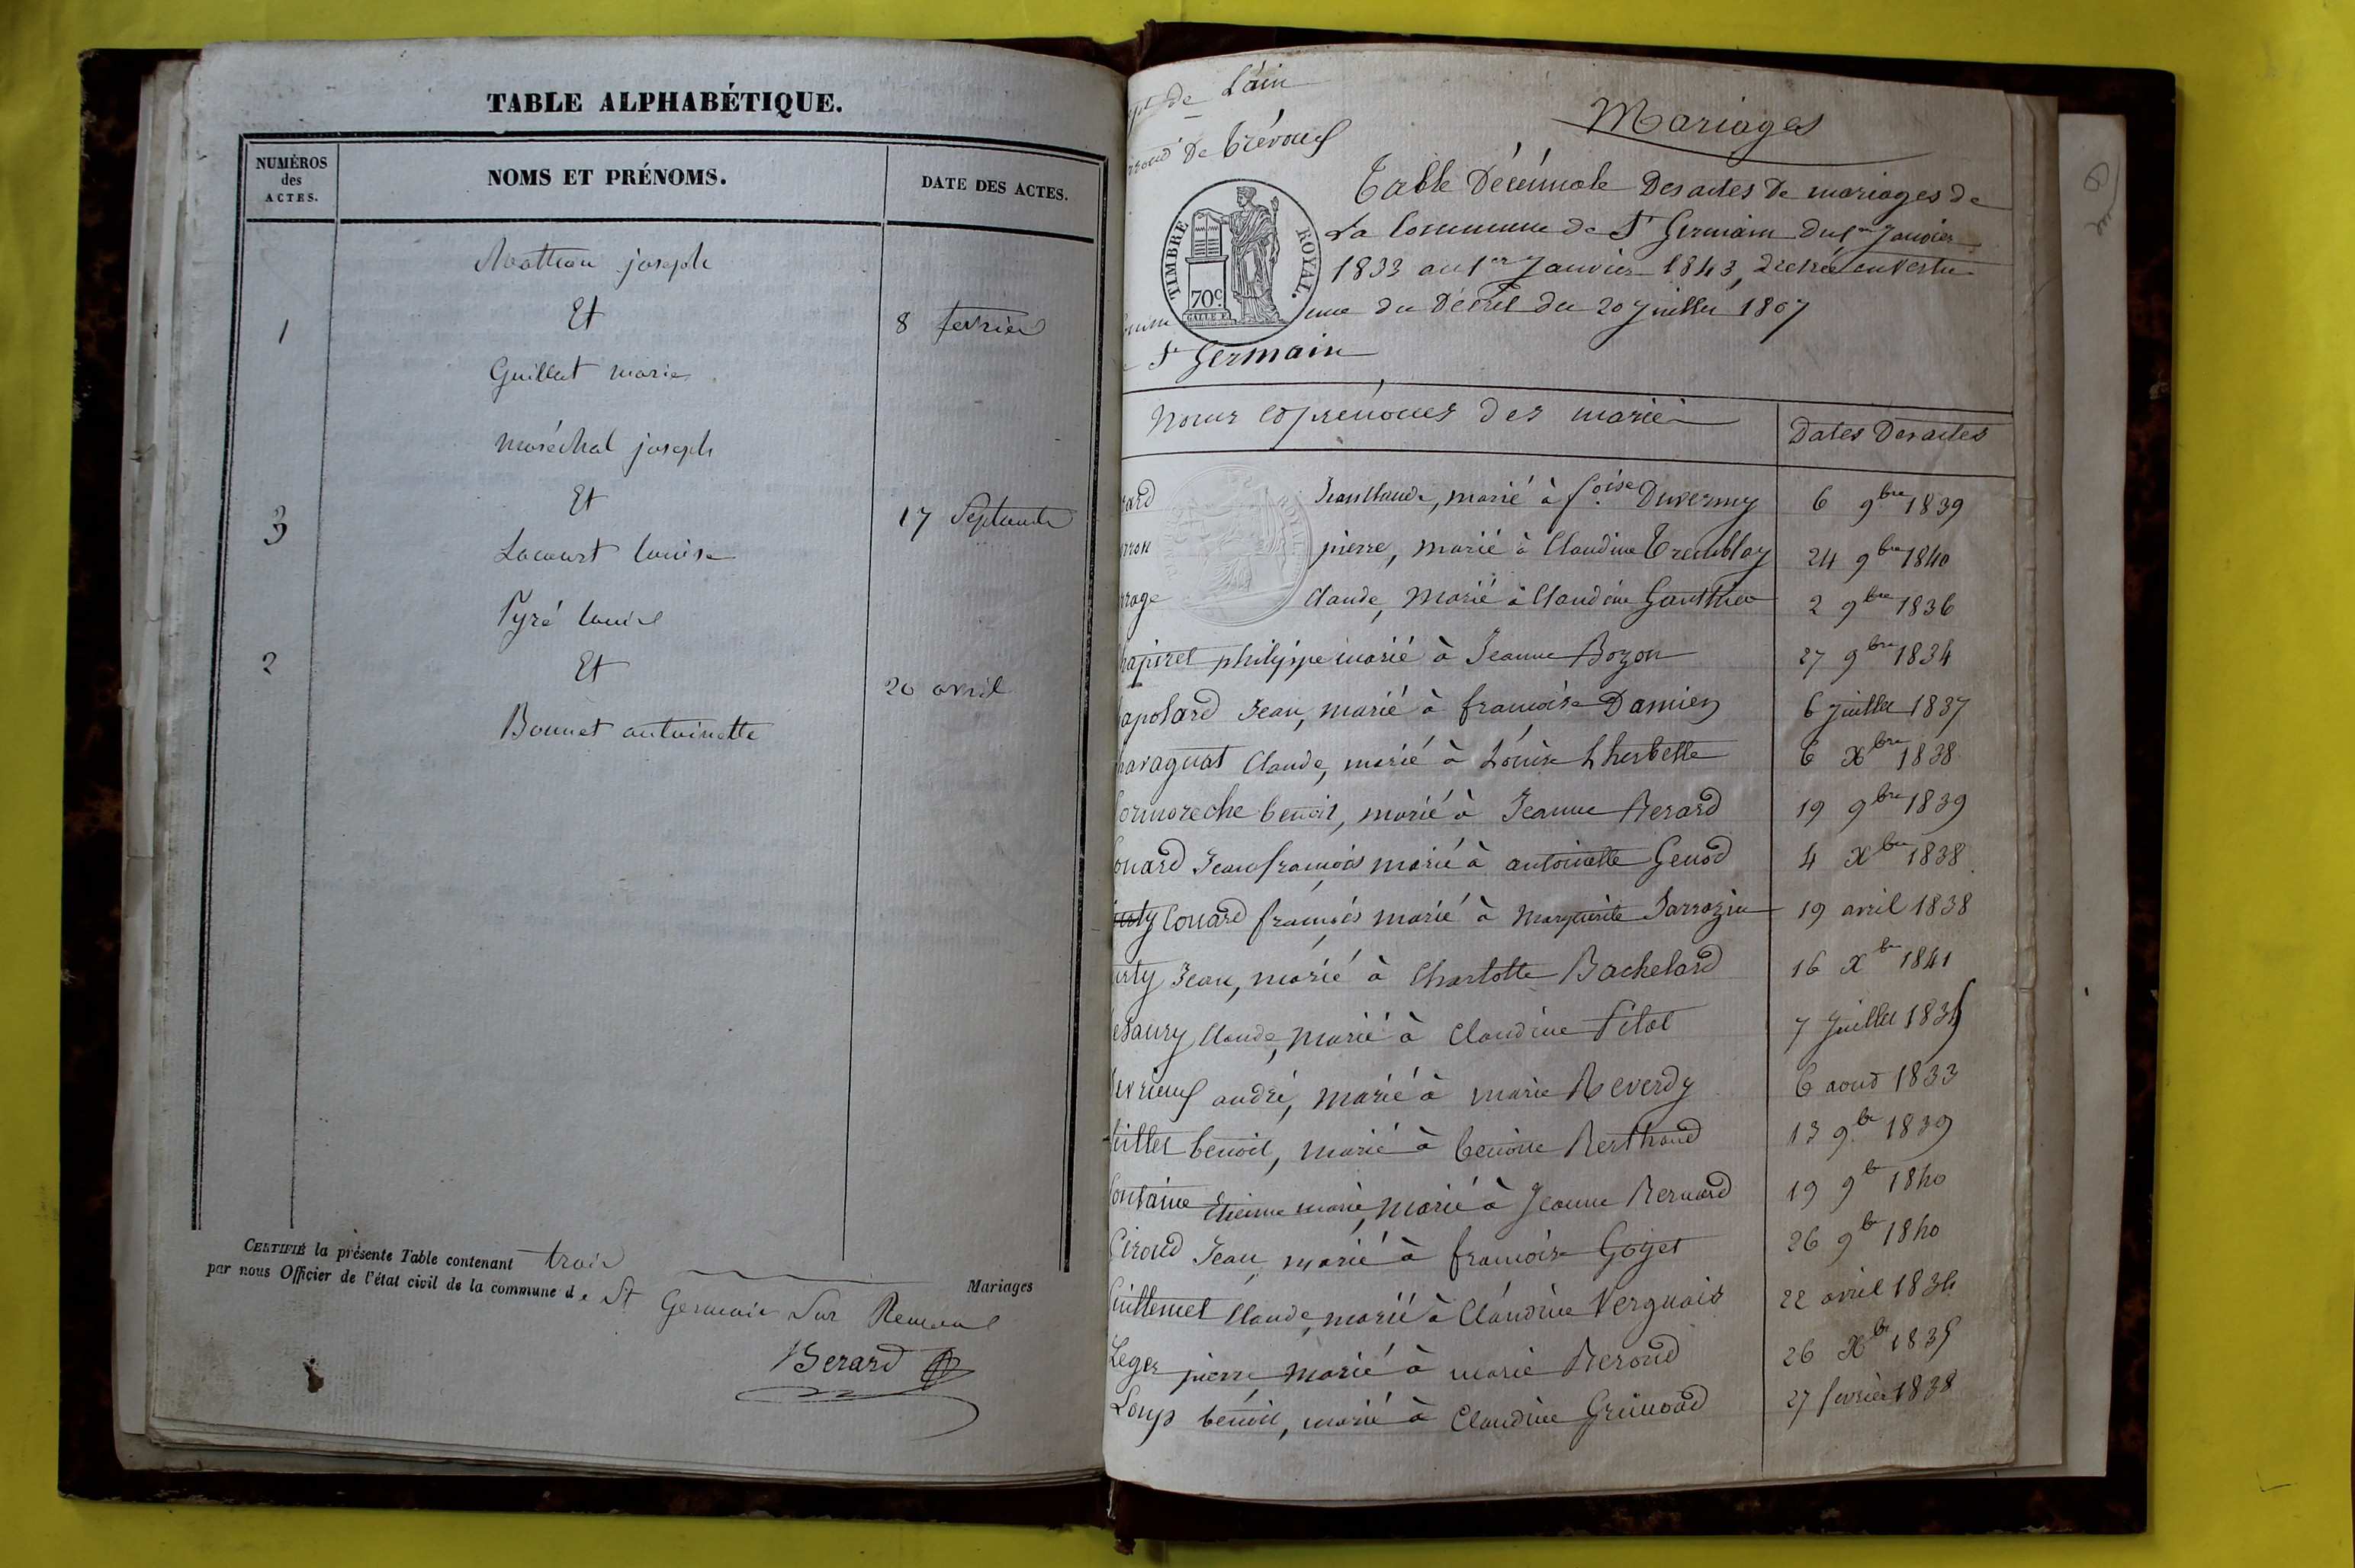 TABLE ALPHABÉTIQUE.
NUMÉROS
des
ACTES.
NOMS ET PRÉNOMS.
DATE DES ACTES.
joseph
Et
1
8 fevrier
Guillet marie
maréchal joseph
Et
3
17 Septembre
Lacourt louise
Et
2
20 avril
Bonnet antoinette
CERTIFIÉ la présente Table contenant trois
Mariages
par nous Officier de l'état civil de la commune de St Germain Sur Renom
Berard
de L'ain
De Trévoux
Mariages
Table Décennale Des actes De mariages de
La Commune de St Germain du 1er Janvier
1833 au 1er Janvier 1843, en vertu
du Décret du 20 Juillet 1807
TIMBRE ROYAL.
70c.
St Germain
Noms et prénoms des mariés
Dates Des actes
Jean Claude, marié à foise 6 9bre 1839
pierre, marié à Claudine Tremblay 24 9bre 1840
Claude, Marié à Claudine Gauthier 2 9bre 1836
philippe marié à Jeanne Bozon 27 9bre 1834
Jean, marié à francoise Damien 6 Juillet 1837
Claude, marié à Louise Lherbette 6 Xbre 1838
benoit, marié à Jeanne Berard 19 9bre 1839
ouard Jean francois marié à antoinette Genod 4 Xbre 1838
Couard francois marié à Marguerite Sarrazin 19 avril 1838
Jean, marié à Charlotte Bachelard 16 Xbre 1841
Claude, Marié à Claudine Pilot 7 Juillet 1835
andré, Marié à marie Reverdy 6 aout 1833
benoit, marié à benoite Berthaud 13 9bre 1839
ontaine Etienne marie, marié à Jeanne Bernard 19 9b 1840
Giroud Jean, marié à francoise Goyet 26 9b 1840
Guillemet Claude, marié à Claudine Vergnais 22 avril 1834
Leger pierre, marié à marie Beroud 26 Xb 1835
Loup benoit, marié à Claudine Grimoad 27 fevrier 1838